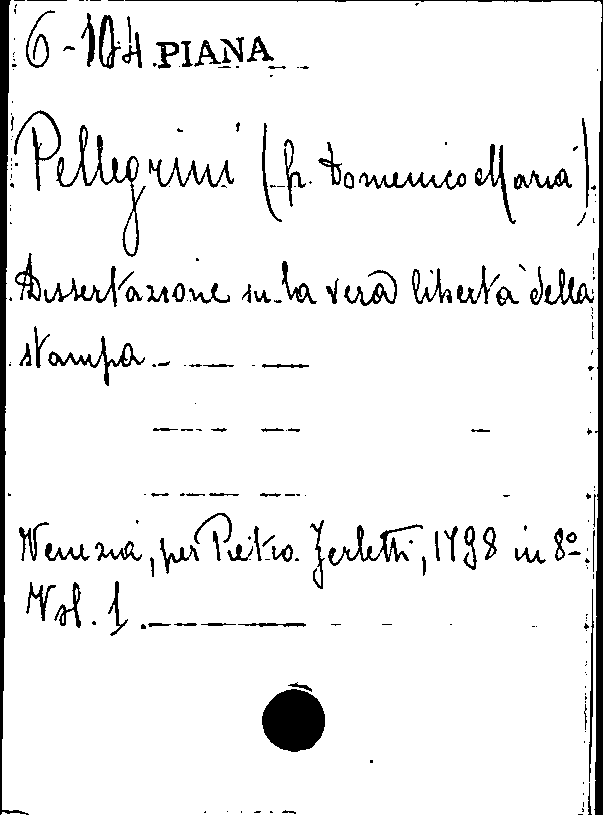 6-104 PIANA
Pellegrini (fr. Domenico Maria)
Dissertazione su la vera libertà della
stampa
Venezia, per Pietro Zerletti, 1798 in 8º
Vol. 1